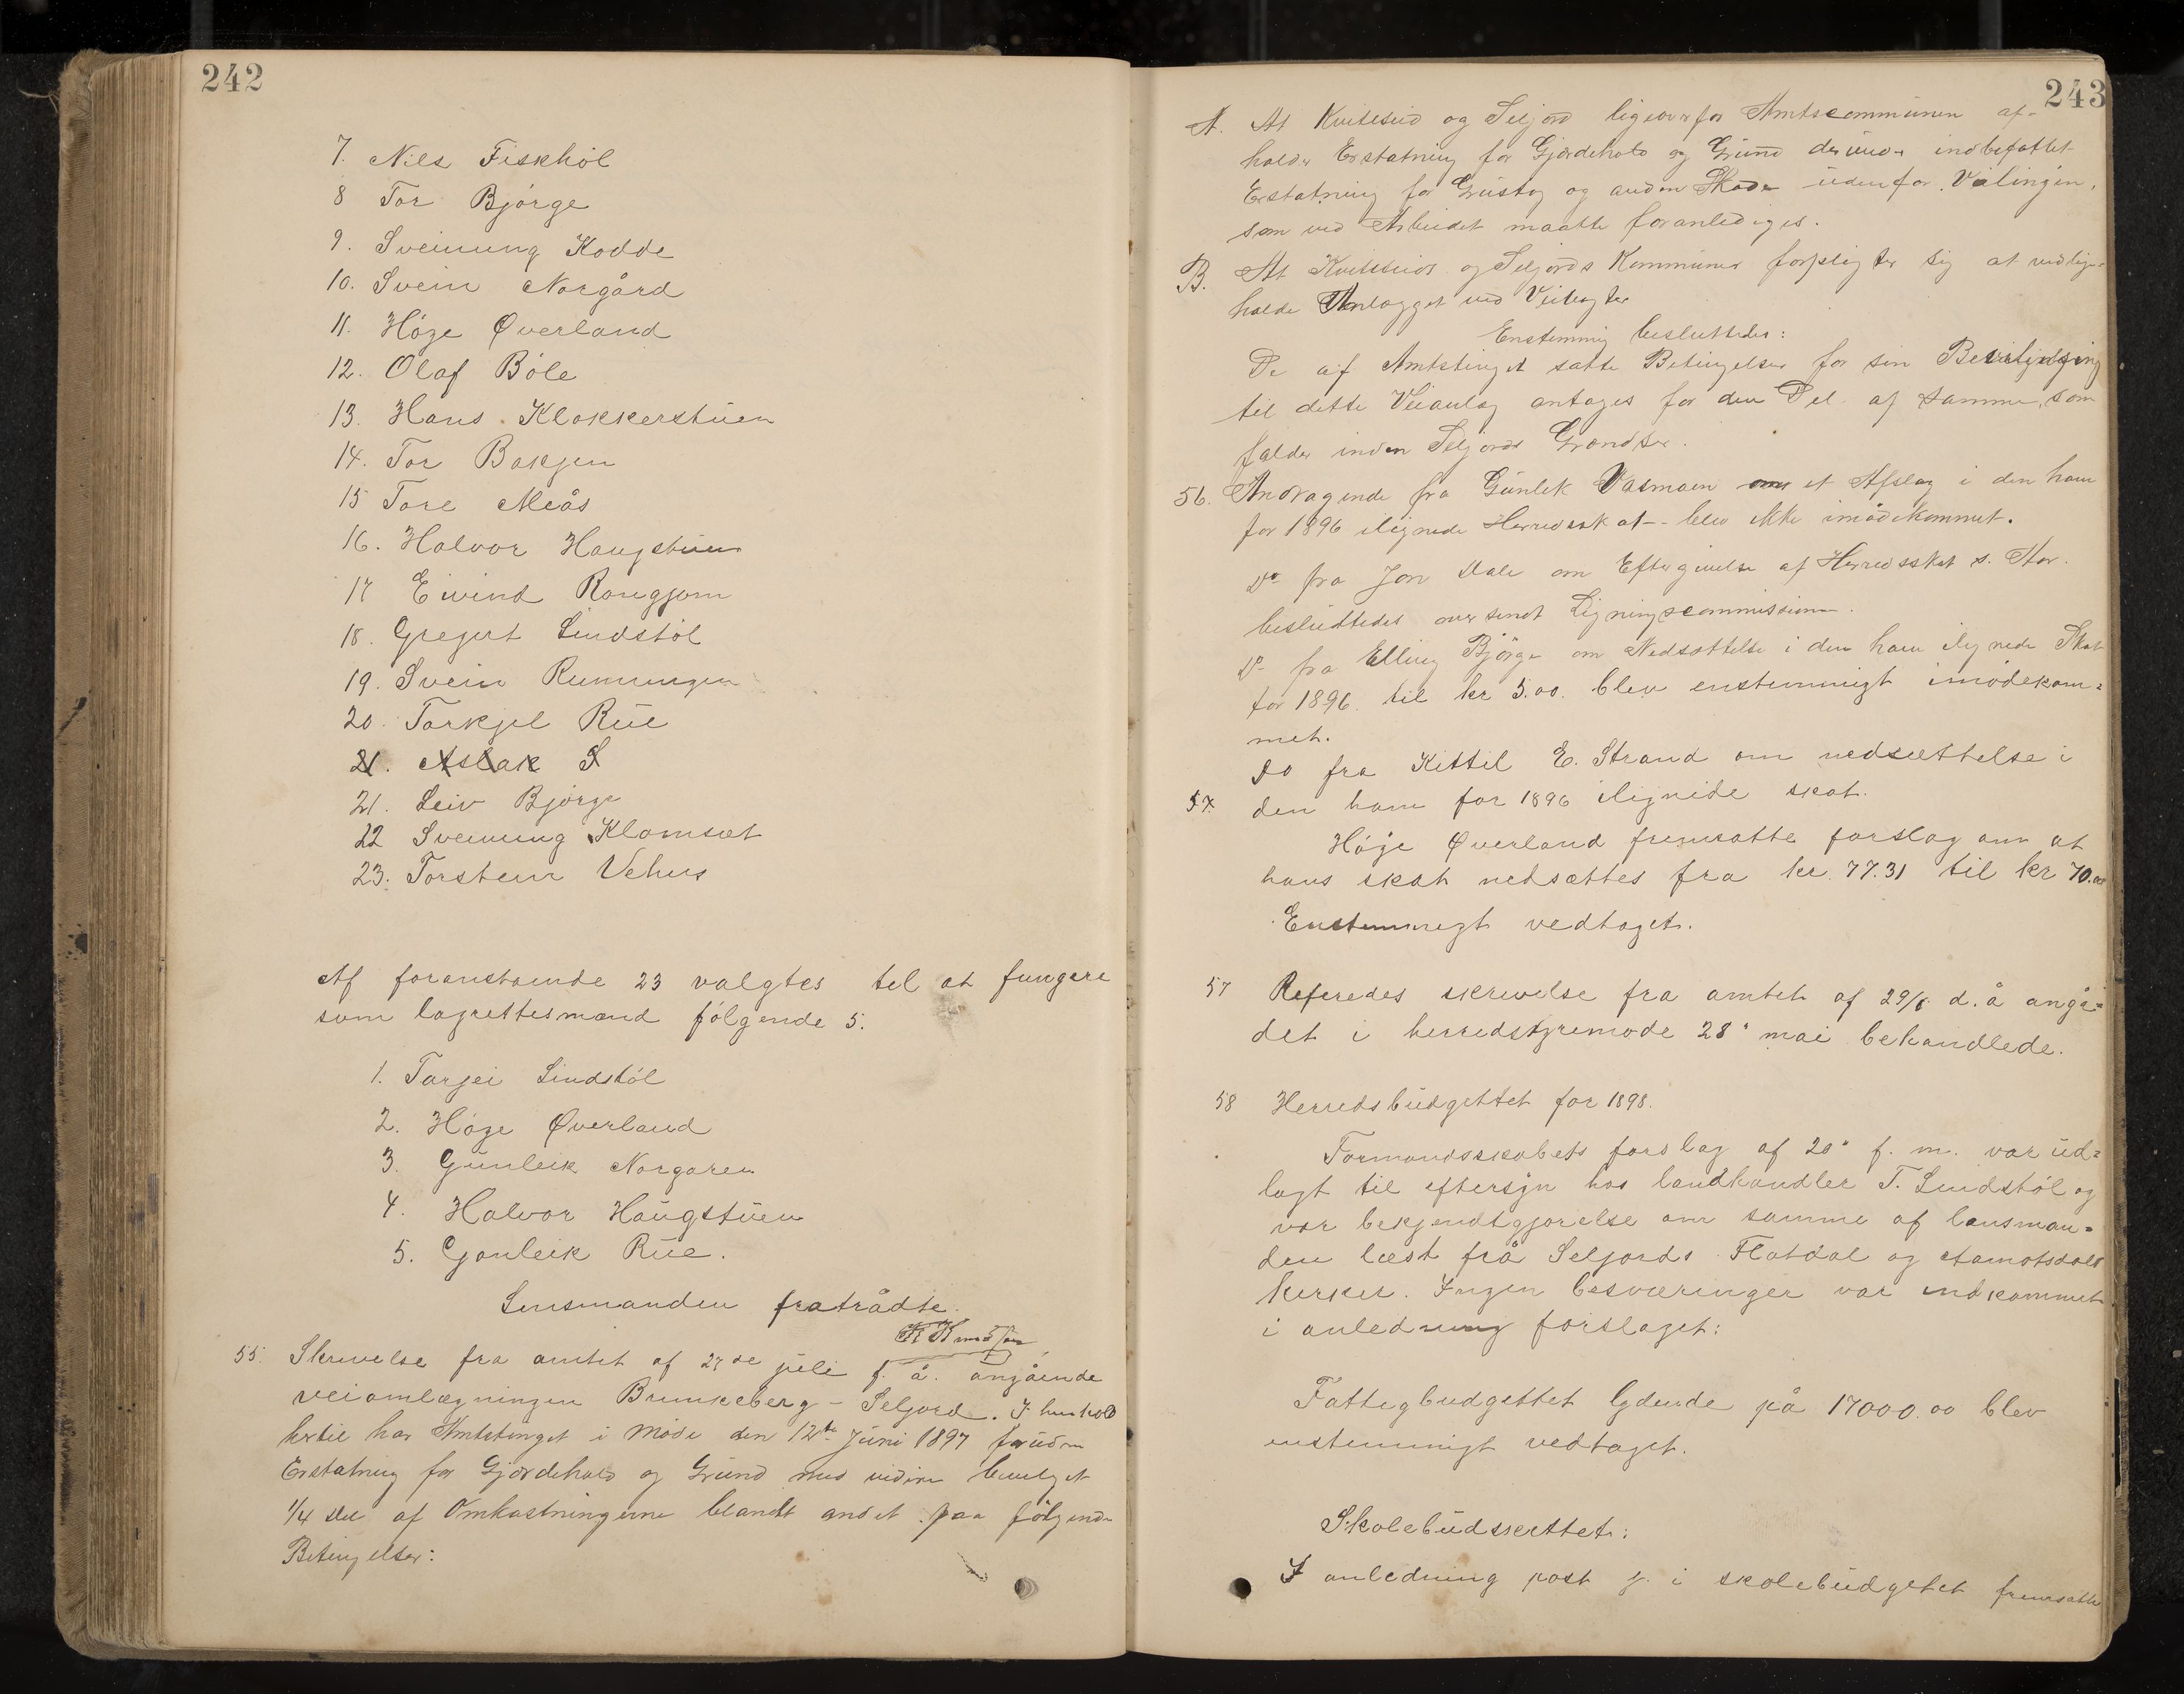 242
7. Nils Fiskhöl
8 Tor Björge
9. Sveinung Kodde
10. Svein Norgård
11. Höge Øverland
12. Olaf Böle
13. Hans Klokkerstuen
14. Tor Bakjen
15 Tore Meås
16. Halvor Haugstuen
17 Eivind Rongjom
18. Gregert Lindstöl
19. Svein Rumungen
20. Torkjel Rue
21. Aslak S
21. Leiv Björge
22 Sveinung Klomset
23. Torstein Vehus
Af foranstaende 23 valgtes til at fungere
som lagrettesmænd følgende 5.
1. Tarjei Lindstöl
2. Höge Øverland
3. Gunleik Norgaren
4. Halvor Haugstuen
5. Gonleik Rue.
Lensmanden fratrådte.
K Knudsen
55. Skrivelse fra amtet af 27de juli f. å. angående
veiomlægningen Brunkeberg - Seljord. I henhold
hertil har Amtstinget i Møde den 12te Juni 1897 foruden
Erstatning for Gjærdehold og Grund med videre bevilget
1/4 Del af Omkostningerne blandt andet paa følgende
Betingelser:
243
A. At Kvitesied og Seljord ligeoverfor Amtscommunen af-
holder Erstatning for Gjærdehold og Grund derunder indbefattet
Erstatning for Grustag og anden Skade udenfor Veilinien,
som ved Arbeidet maatte foranlediges.
B. At Kviteseids og Seljords Kommuner forpligter sig at vedlige-
holde Anlægget ved Veivogter
Enstemmig besluttedes:
De af Amtstinget satte Betingelser for sin Bevilgning
til dette Veianlæg antages for den Del af samme, som
falder inden Seljords Grændser.
56. Andragende fra Gunlek Vasmoen om et Afslag i den ham
for 1896 ilignede Herredsskat - blev ikke imødekommet.
Do fra Jon Dale om Eftergivelse af Herredsskat s. Aar.
besluttedes oversendt Ligningscommissionen.
Do fra Elling Björge om Nedsættelse i den ham ilignede Skat
for 1896 til kr 5.00. blev enstemmigt imødekom=
met.
Do fra Kittil E. Strand om nedsættelse i
57. den ham for 1896 ilignede skat.
Höge Øverland fremsatte forslag om at
hans skat nedsættes fra kr. 77.31 til kr 70.00
Enstemmigt vedtaget.
57 Referedes skrivelse fra amtet af 29/6 d. å angå=
det i herredstyremøde 28' mai behandlede.
58 Herredsbudgettet for 1898.
Formandsskabets forslag af 20' f. m. var ud=
lagt til eftersyn hos landhandler T. Lindstöl og
var bekjendtgjørelse om samme af lensman=
den læst frå Seljords Flatdal og Aamotsdals
kirker. Ingen besværinger var indkommet
i anledning forslaget:
Fattigbudgettet lydende på 17000.00 blev
enstemmigt vedtaget.
Skolebudskettet:
I anledning post g. i skolebudgetet fremsatte